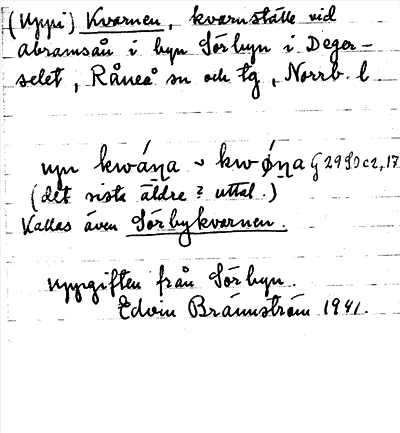 (Uppi) Kvarnen, kvarnställe vid
Abramsån i byn Sörbyn i Deger-
selet, Råneå sn och tg, Norrb. l.
upn kwáṇa ~ kwǿṇa G 29 S 0 c 2, 17
(det sista äldre? uttal.)
Kallas även Sörbykvarnen.
Uppgiften från Sörbyn.
Edvin Brännström 1941.